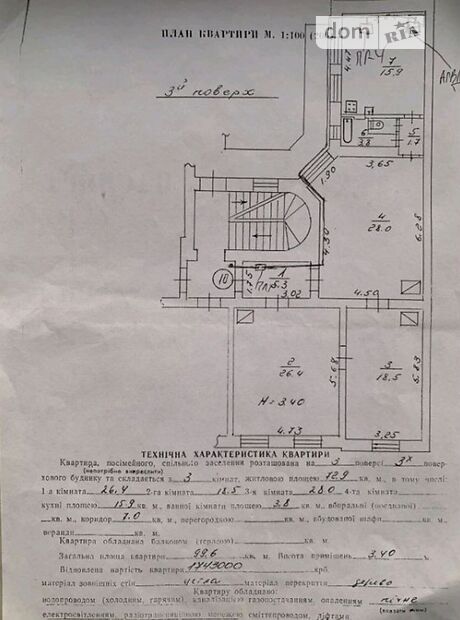 ПЛАН КВАРТИРИ М. 1:100
dom RIA
3й поверх
4.47
7
15.9
6
3.8
5
1.7
3,65
1.90
4
28.0
6.28
4.30
10
1.75
1
5.3
3.02
4.50
2
26.4
5.68
3
18.5
5.83
H = 3.40
4.73
3.25
ТЕХНІЧНА ХАРАКТЕРИСТИКА КВАРТИРИ
Квартира, посімейного, спільного заселення розташована на 3 поверсі 3х повер-
(непотрібне викреслити)
хового будинку та складається з 3 кімнат, житловою площею 72.9 кв. м., в тому числі:
1-а кімната 26.4 2-га кімната 18.5 3-я кімната 28.0 4-та кімната
кухні площею 15.9 кв. м., ванної кімнати площею 3.8 кв. м., вбиральні (поєднаної)
кв. м., коридор 7.0 кв. м., перегородкою кв. м., вбудованої шафи кв. м.,
веранди кв. м.
Квартира обладнана балконом (терасою) кв. м.
Загальна площа квартири 99.6 кв. м. Висота приміщень 3.40 м.
Відновлена вартість квартири 1749000 крб.
матеріал зовнішніх стін цегла матеріал перекриття дерево
Квартиру обладнано:
водопроводом (холодним, гарячим), каналізацією газопостачанням, опаленням пічне
(вказати яким)
електроосвітленням, радіотрансляційною мережею сміттєпроводом, ліфтами.